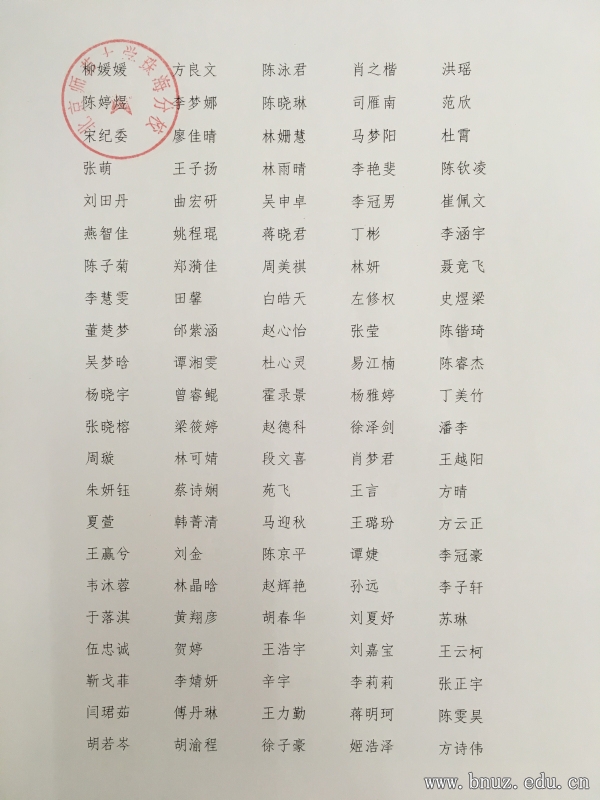 北京师范大学珠海分校
柳媛媛 方良文 陈泳君 肖之楷 洪瑶
陈婷煜 李梦娜 陈晓琳 司雁南 范欣
宋纪委 廖佳晴 林姗慧 马梦阳 杜霄
张萌 王子扬 林雨晴 李艳斐 陈钦凌
刘田丹 曲宏研 吴申卓 李冠男 崔佩文
燕智佳 姚程琨 蒋晓君 丁彬 李涵宇
陈子菊 郑漪佳 周美祺 林妍 聂竞飞
李慧雯 田馨 白皓天 左修权 史煜梁
董楚梦 邰紫涵 赵心怡 张莹 陈锴琦
吴梦晗 谭湘雯 杜心灵 易江楠 陈睿杰
杨晓宇 曾睿鲲 霍录景 杨雅婷 丁美竹
张晓榕 梁筱婷 赵德科 徐泽剑 潘李
周璇 林可婧 段文喜 肖梦君 王越阳
朱妍钰 蔡诗娴 苑飞 王言 方晴
夏萱 韩菁清 马迎秋 王璐玢 方云正
王赢兮 刘金 陈京平 谭婕 李冠豪
韦沐蓉 林晶晗 赵辉艳 孙远 李子轩
于落淇 黄翔彦 胡春华 刘夏妤 苏琳
伍忠诚 贺婷 王浩宇 刘嘉宝 王云柯
靳戈菲 李婧妍 辛宇 李莉莉 张正宇
闫珺茹 傅丹琳 王力勤 蒋明珂 陈雯昊
胡若岑 胡渝程 徐子豪 姬浩泽 方诗伟
www.bnuz.edu.cn